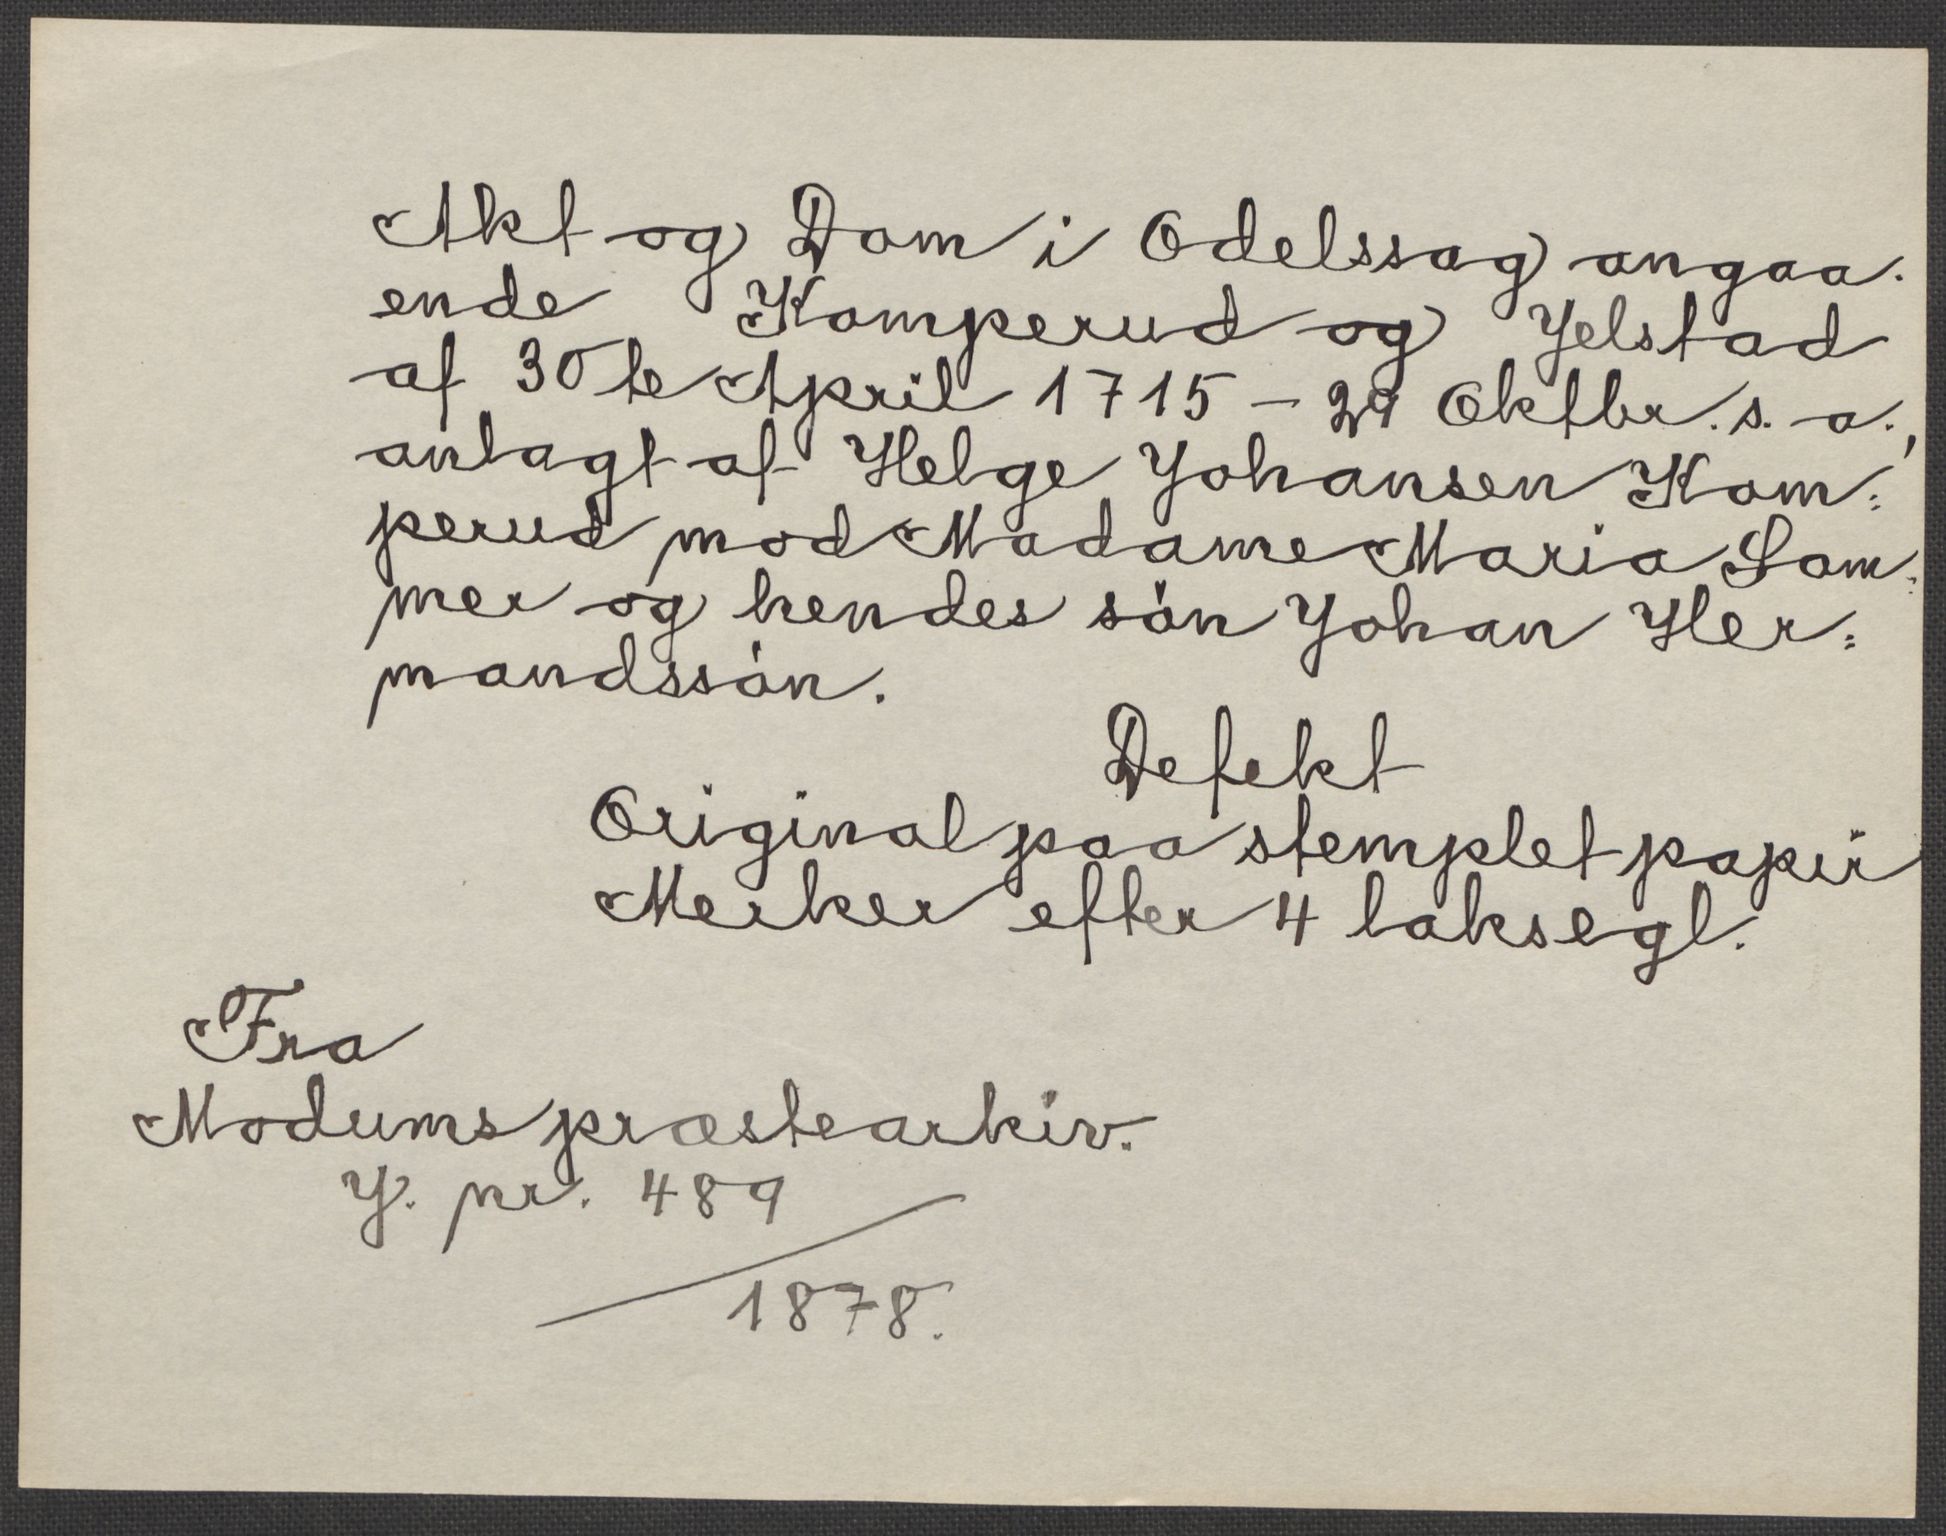 Akt og Dom i Odelssag angaa-
ende Komperud og Jelstad
af 30te April 1715 - 29 Oktbr. s. a.,
anlagt af Helge Johansen Kom:
perud mod Madame Maria Som:
mer og hendes sön Johan Her:
mandssön.
Defekt
Original paa stemplet papir
Merker efter 4 laksegl.
Fra
Modums præstearkiv.
J. nr. 489
1878.